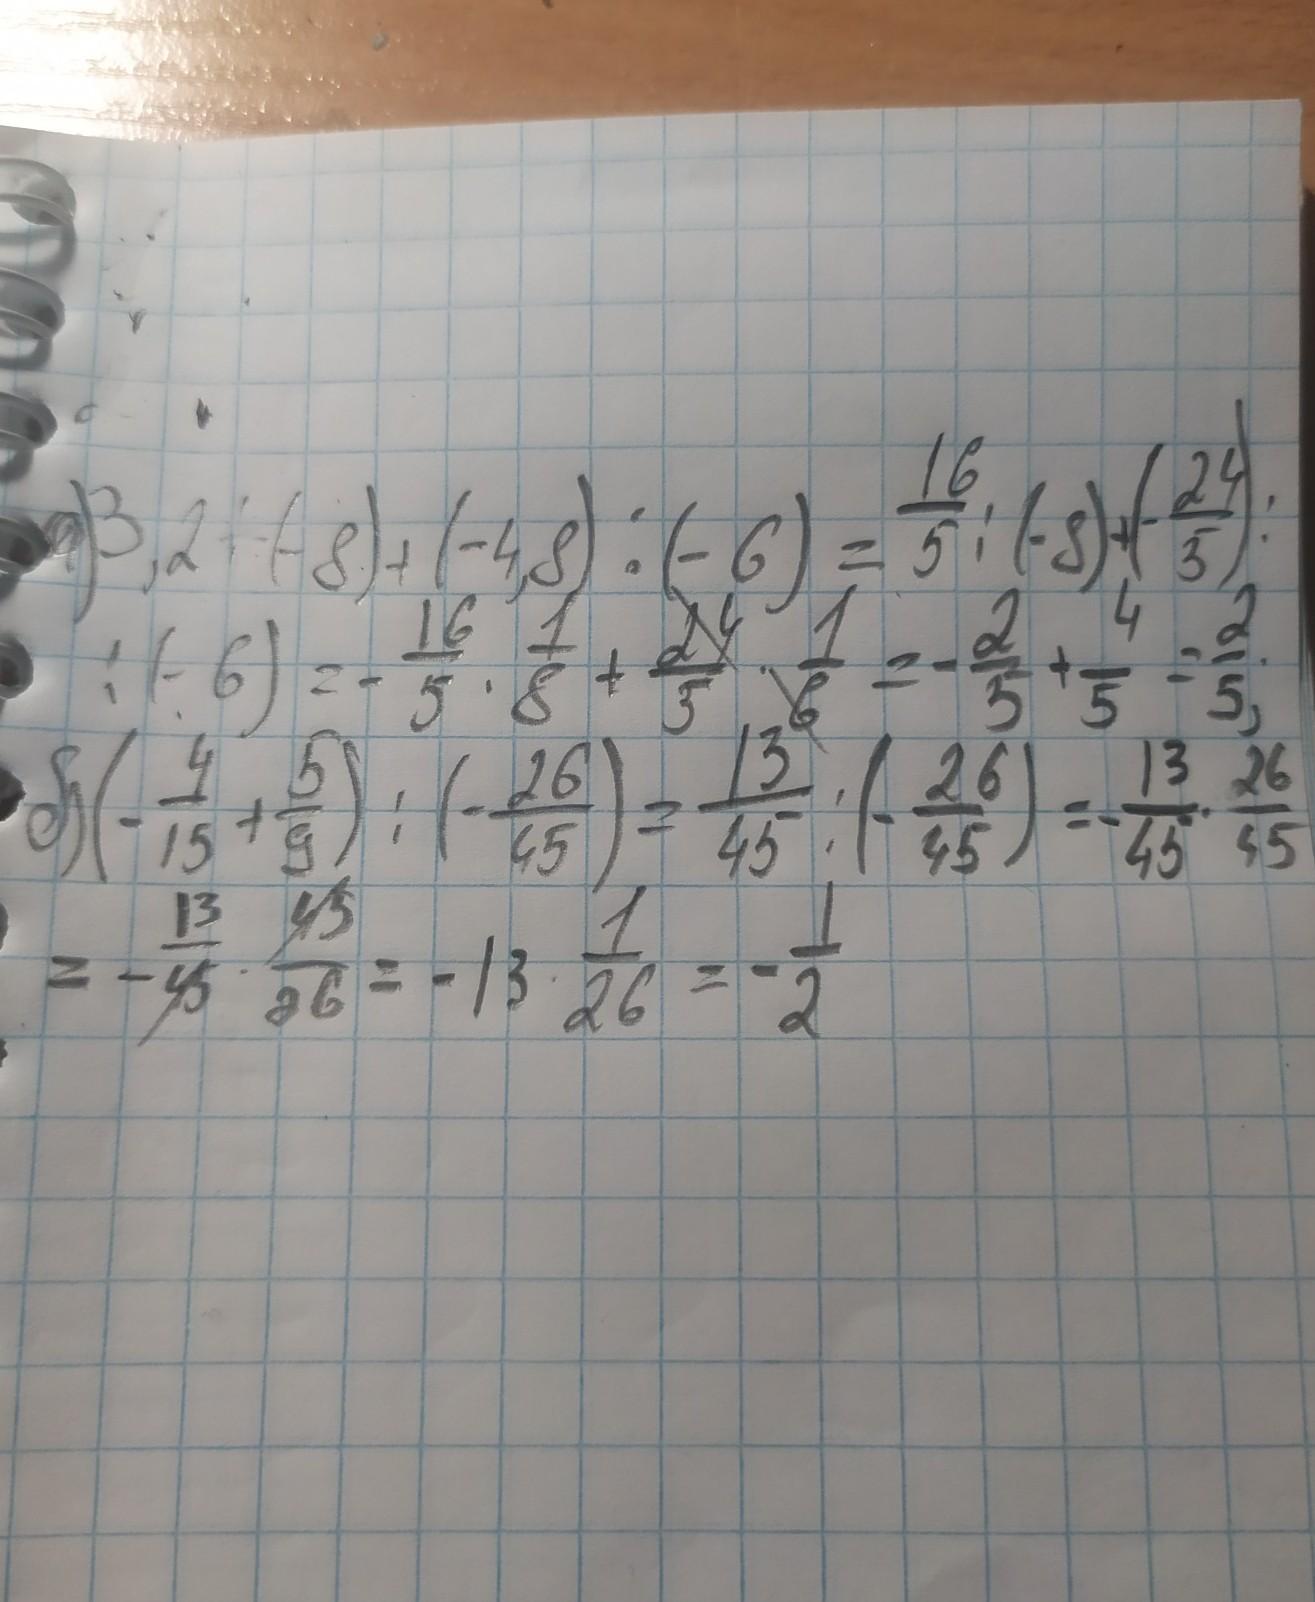 а) 3,2 : (-8) + (-4,8) : (-6) = 16/5 : (-8) + (-24/5) :
: (-6) = -16/5 · 1/8 + 24/5 · 1/6 = -2/5 + 4/5 = 2/5;
б) (-4/15 + 5/9) : (-26/45) = 13/45 : (-26/45) = -13/45 · 26/45
= -13/45 · 45/26 = -13 · 1/26 = -1/2